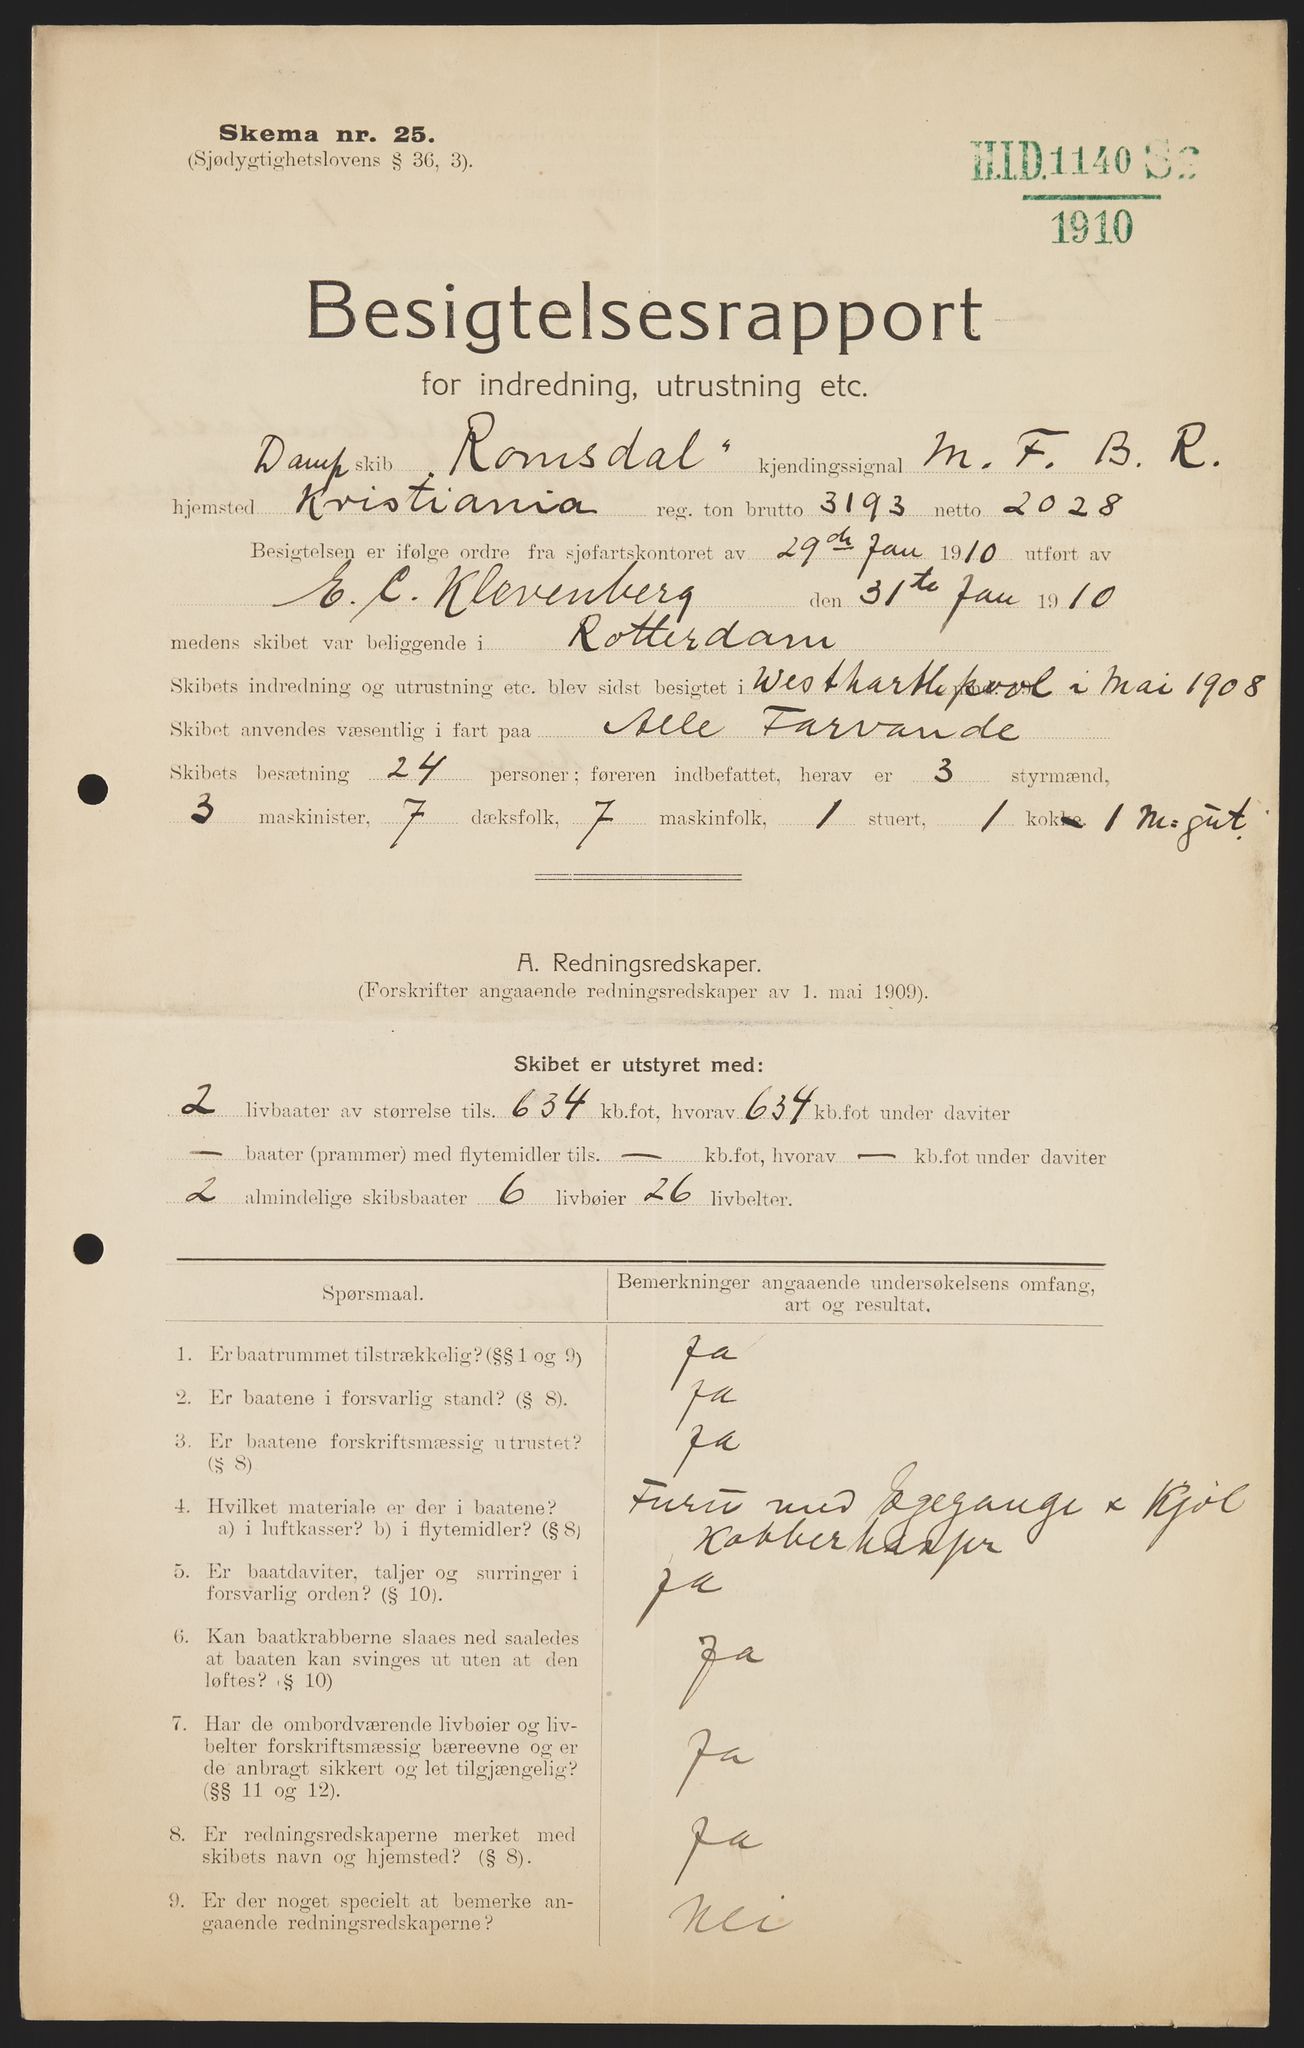 Skema nr. 25.
(Sjødygtighetslovens § 36, 3).
H.I.D. 1140 Sc
1910
Besigtelsesrapport
for indredning, utrustning etc.
Damp skib „Romsdal“ kjendingssignal M. F. B. R.
hjemsted Kristiania reg. ton brutto 3193 netto 2028
Besigtelsen er ifølge ordre fra sjøfartskontoret av 29de Jan 1910 utført av
E. C. Klevenberg den 31te Jan 1910
medens skibet var beliggende i Rotterdam
Skibets indredning og utrustning etc. blev sidst besigtet i Westhartlepool i Mai 1908
Skibet anvendes væsentlig i fart paa Alle Farvande
Skibets besætning 24 personer; føreren indbefattet, herav er 3 styrmænd,
3 maskinister, 7 dæksfolk, 7 maskinfolk, 1 stuert, 1 kok 1 M=gut.
A. Redningsredskaper.
(Forskrifter angaaende redningsredskaper av 1. mai 1909).
Skibet er utstyret med:
2 livbaater av størrelse tils. 634 kb.fot, hvorav 634 kb.fot under daviter
— baater (prammer) med flytemidler tils. — kb.fot, hvorav — kb.fot under daviter
2 almindelige skibsbaater 6 livbøier 26 livbelter.
Spørsmaal.
Bemerkninger angaaende undersøkelsens omfang,
art og resultat.
1. Er baatrummet tilstrækkelig? (§§ 1 og 9)
Ja
2. Er baatene i forsvarlig stand? (§ 8).
Ja
3. Er baatene forskriftsmæssig utrustet?
(§ 8)
Ja
4. Hvilket materiale er der i baatene?
a) i luftkasser? b) i flytemidler? (§ 8)
Furu med Egegange & Kjøl
Kobberkasser
5. Er baatdaviter, taljer og surringer i
forsvarlig orden? (§ 10).
Ja
6. Kan baatkrabberne slaaes ned saaledes
at baaten kan svinges ut uten at den
løftes? (§ 10)
Ja
7. Har de ombordværende livbøier og liv-
belter forskriftsmæssig bæreevne og er
de anbragt sikkert og let tilgjængelig?
(§§ 11 og 12).
Ja
8. Er redningsredskaperne merket med
skibets navn og hjemsted? (§ 8).
Ja
9. Er der noget specielt at bemerke an-
gaaende redningsredskaperne?
Nei